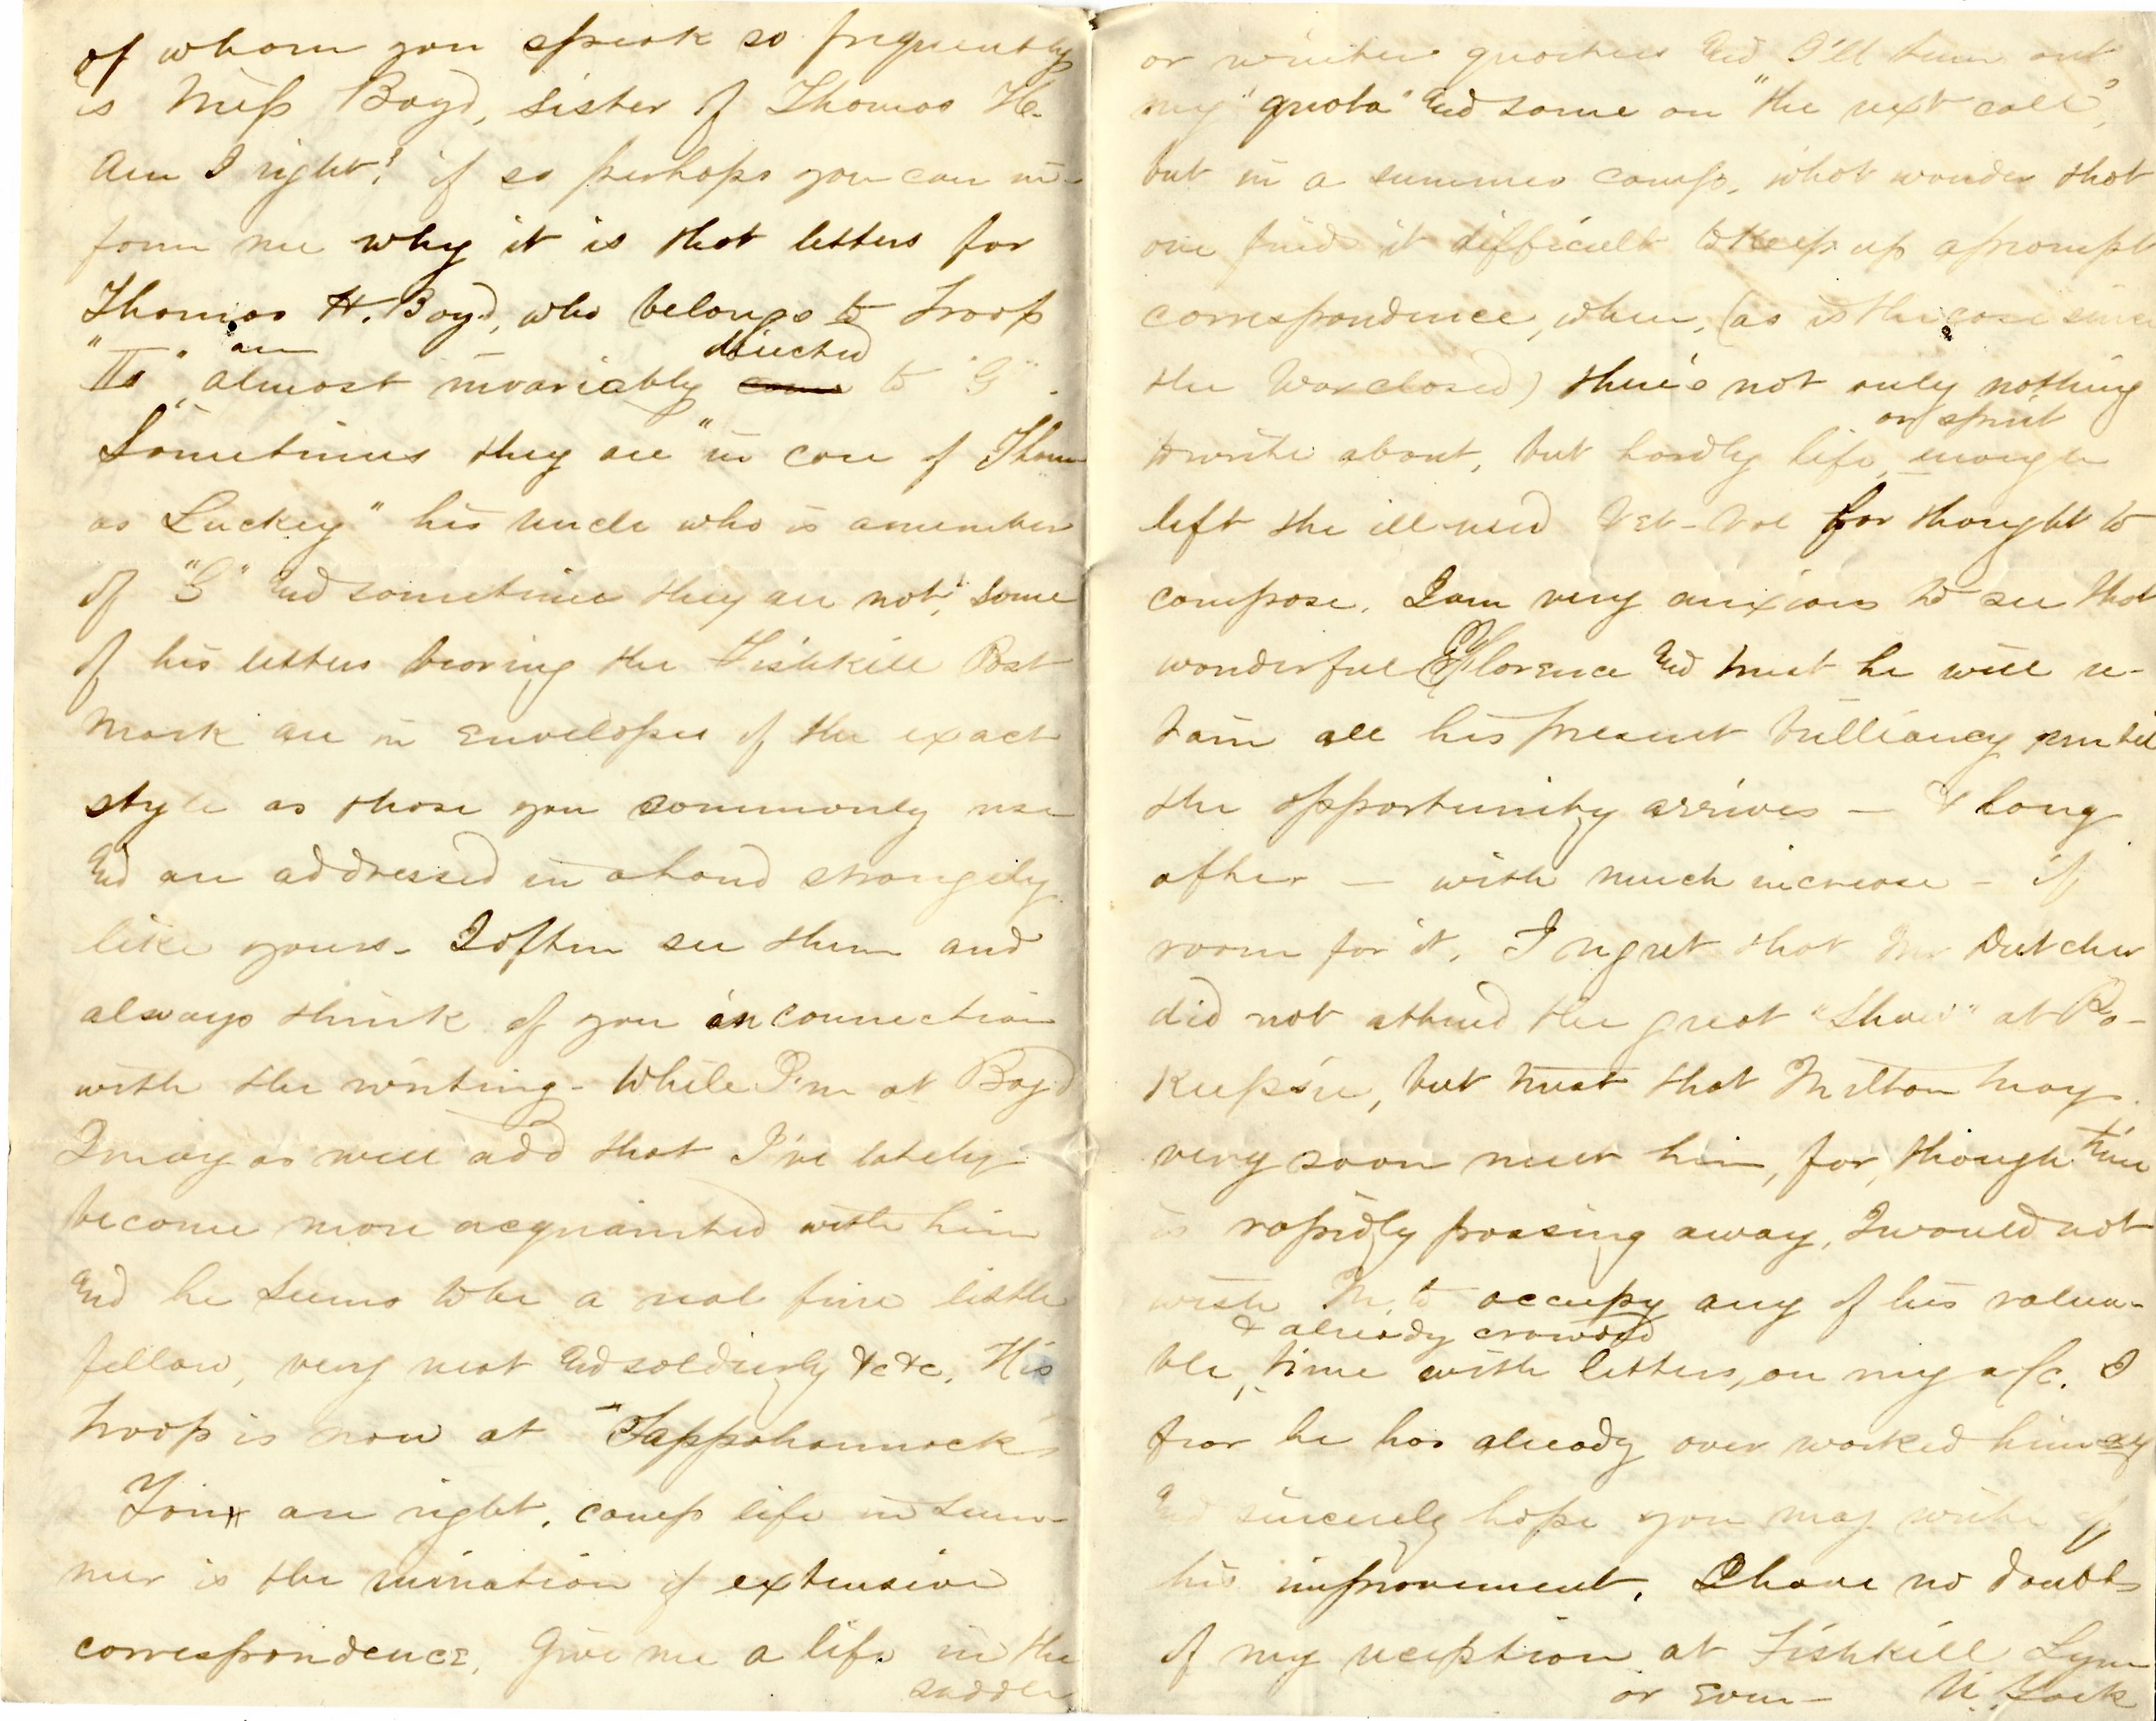 of whom you speak so frequently
is Miss Boyd, sister of Thomas H.
Am I right? if so perhaps you can in-
form me why it is that letters for
Thomas H. Boyd, who belongs to Troop
are directed
almost invariably come to "G".
Sometimes they are "in care of Thom-
as Luckey" his uncle who is a member
of "G" and sometimes they are not, some
of his letters bearing the Fishkill Post
Mark are in Envelopes of the exact
style as those you commonly use
and are addressed in a hand strangely
like yours. I often see them and
always think of you in connection
with the writing. While I'm at Boyd
I may as well add that I've lately
become more acquainted with him
and he seems to be a real fine little
fellow, very neat and soldierly &c &c. His
troop is now at "Tappahannock"
You are right, camp life in sum-
mer is the ruination of extensive
correspondence. Give me a life in the
saddle
or winter quarters and I'll turn out
my "quota" and some on "the next call",
but in a summer camp, what wonder that
one finds it difficult to keep up a prompt
correspondence, when, (as is the case since
the War closed) there's not only nothing
or spirit
to write about, but hardly life, enough
left the ill-used Vet-Vol for thought to
compose. I am very anxious to see that
wonderful Florence and trust he will re-
tain all his present brilliancy until
the opportunity arrives — & long
after — with much increase — if
room for it. I regret that Mr Dutcher
did not attend the great "Show" at Po-
keepsie, but trust that Milton may
very soon meet him, for, though time
is rapidly passing away, I would not
wish M. to occupy any of his valua-
& already crowded
ble, time with letters, on my a/c. I
fear he has already over worked himself
and sincerely hope you may write of
his improvement. I have no doubts
of my reception at Fishkill
or even — N. York